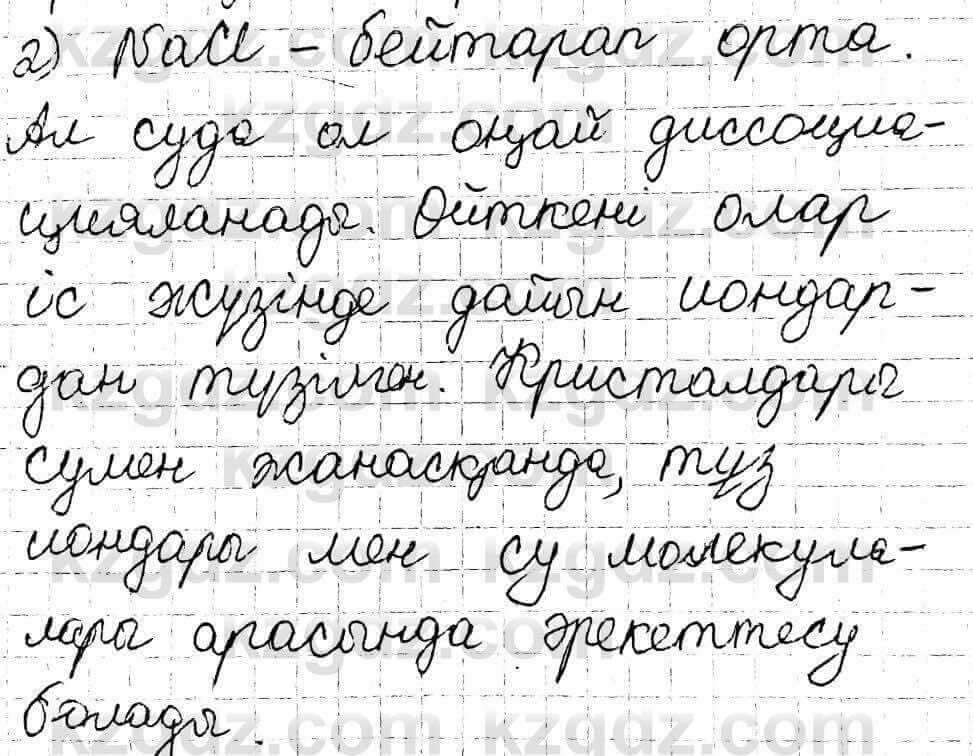 2) NaCl - бейтарап орта.
Ал суда ол оңай диссоциа-
цияланады. Өйткені олар
іс жүзінде дайын иондар-
дан түзілген. Кристалдары
сумен жанасқанда, тұз
иондары мен су молекула-
лары арасында әрекеттесу
болады.